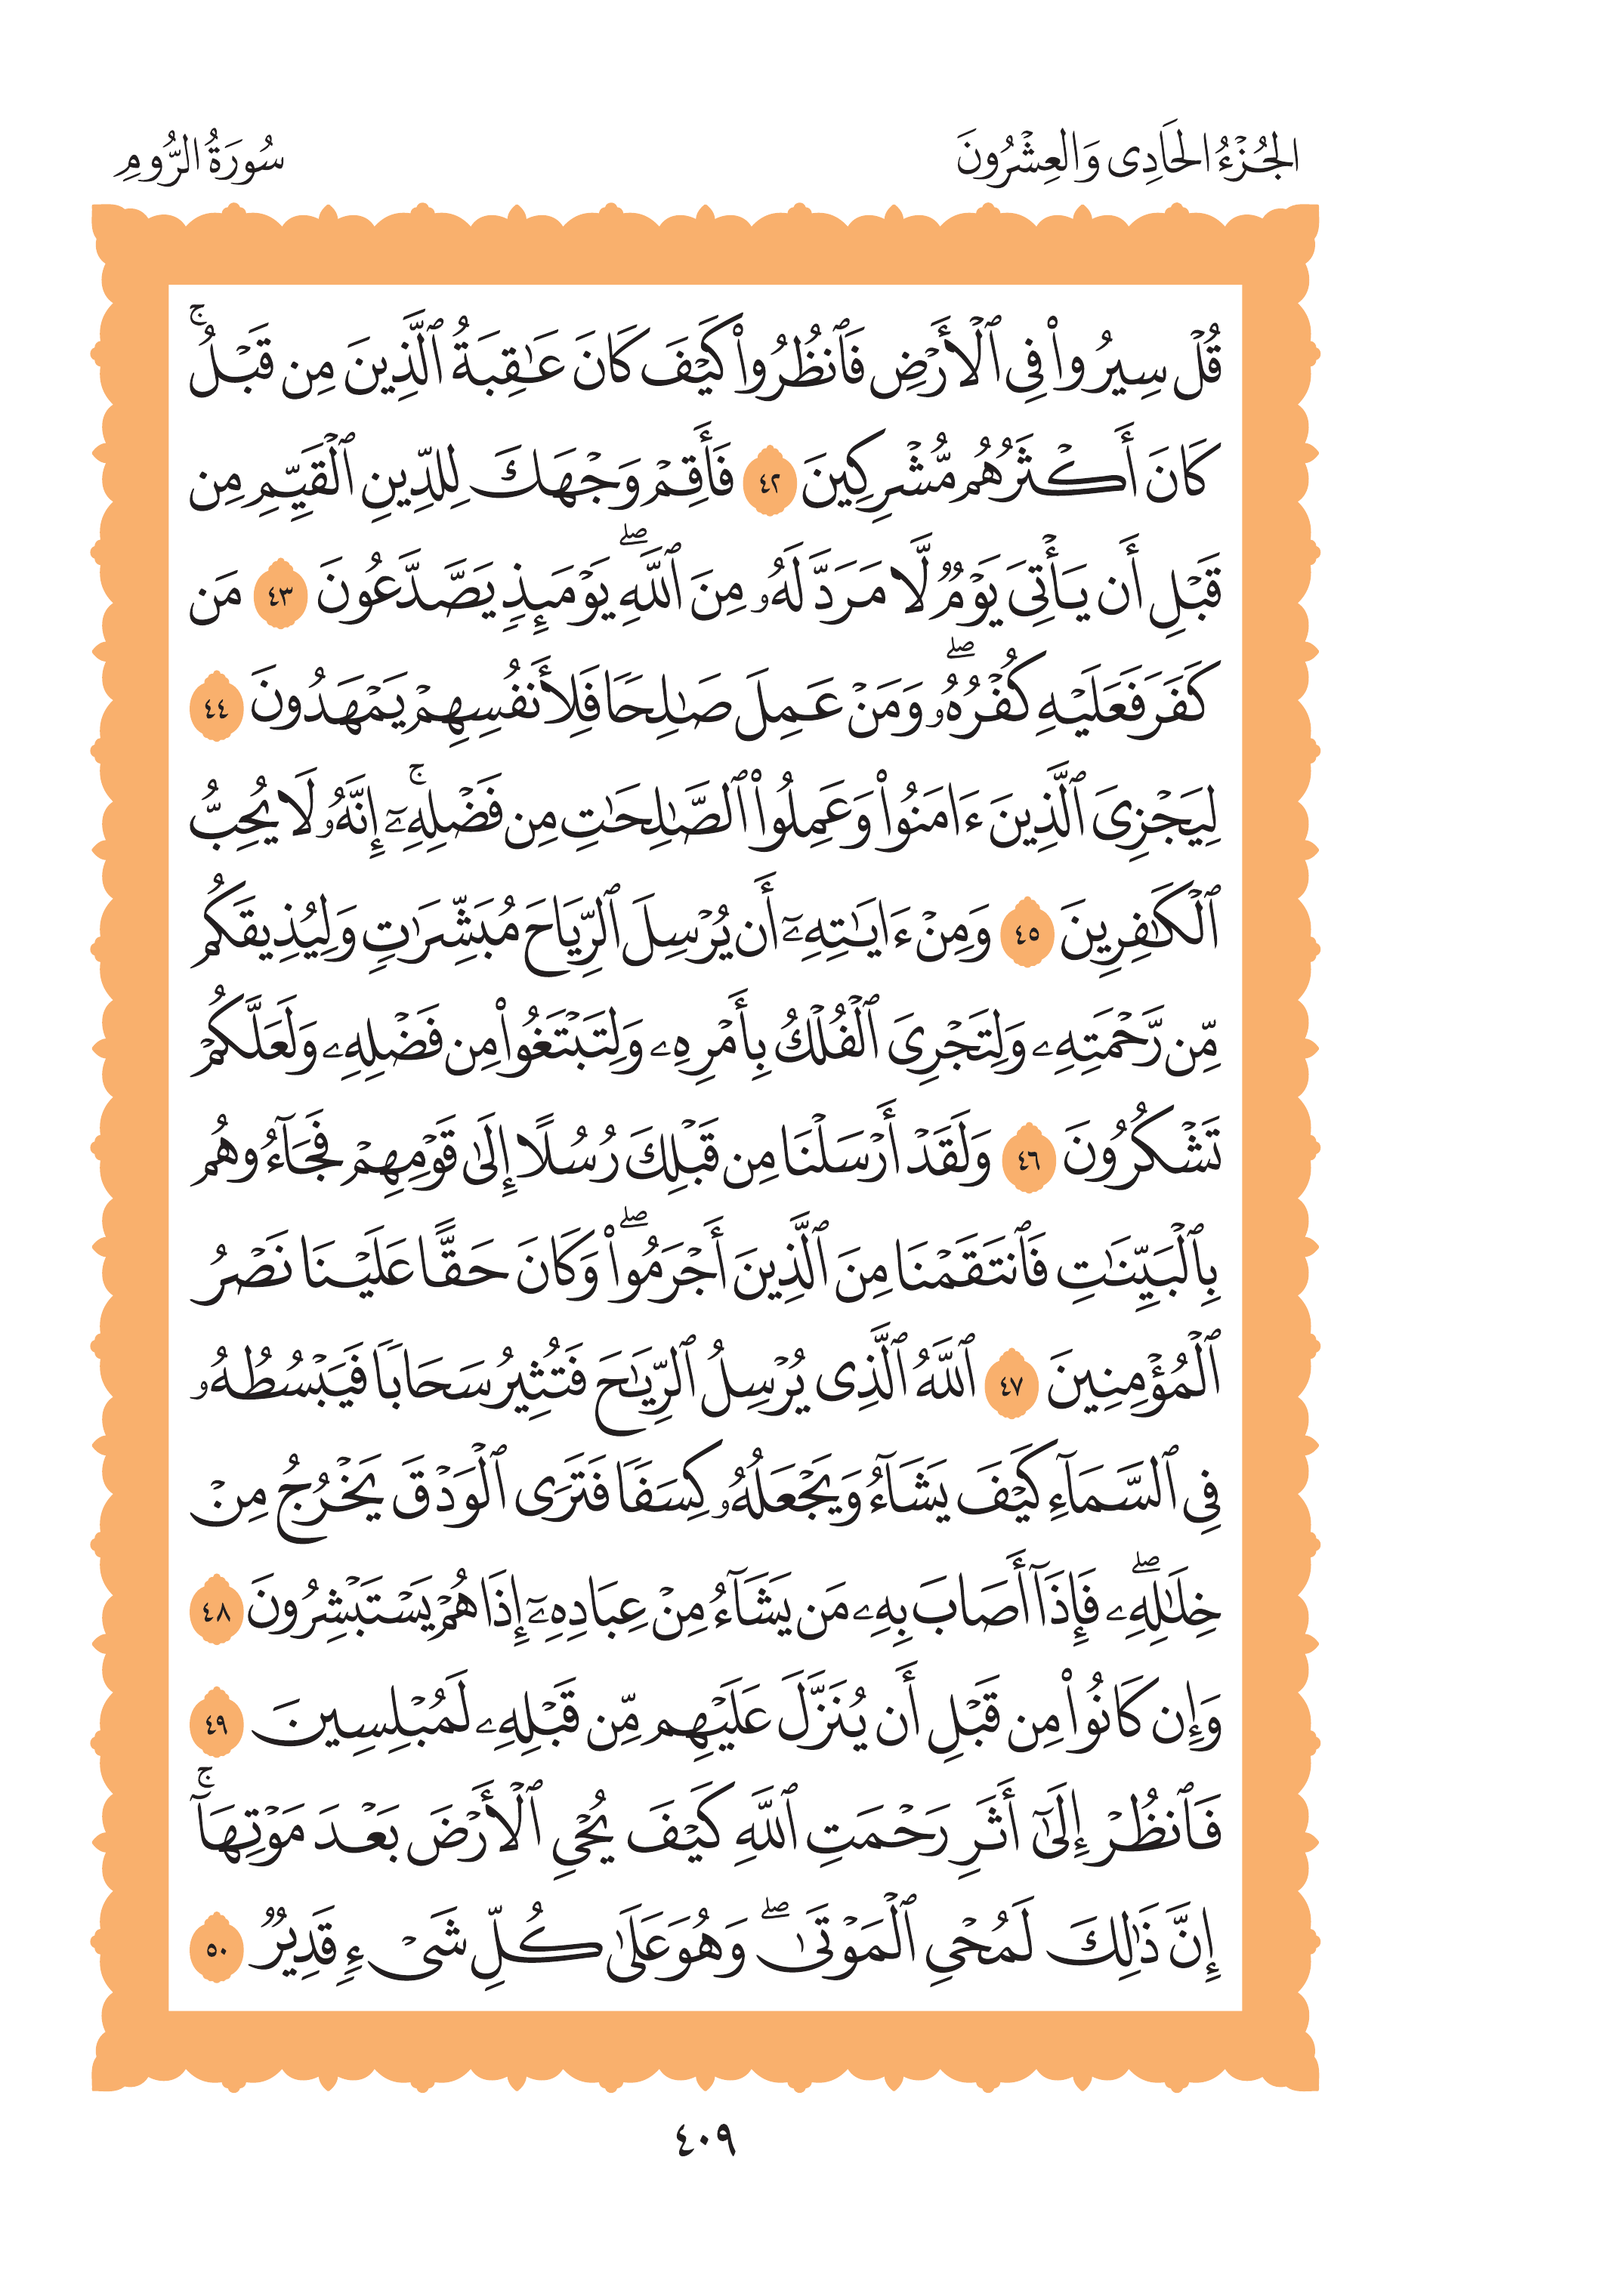 الجُزْءُ الحَادِى وَالعِشْرُونَ
سُورَةُ الرُّومِ
قُلْ سِيرُوا۟ فِى ٱلْأَرْضِ فَٱنظُرُوا۟ كَيْفَ كَانَ عَـٰقِبَةُ ٱلَّذِينَ مِن قَبْلُ ۚ
كَانَ أَكْثَرُهُم مُّشْرِكِينَ ٤٢ فَأَقِمْ وَجْهَكَ لِلدِّينِ ٱلْقَيِّمِ مِن
قَبْلِ أَن يَأْتِىَ يَوْمٌ لَّا مَرَدَّ لَهُۥ مِنَ ٱللَّهِ ۖ يَوْمَئِذٍ يَصَّدَّعُونَ ٤٣ مَن
كَفَرَ فَعَلَيْهِ كُفْرُهُۥ ۖ وَمَنْ عَمِلَ صَـٰلِحًا فَلِأَنفُسِهِمْ يَمْهَدُونَ ٤٤
لِيَجْزِىَ ٱلَّذِينَ ءَامَنُوا۟ وَعَمِلُوا۟ ٱلصَّـٰلِحَـٰتِ مِن فَضْلِهِۦٓ ۚ إِنَّهُۥ لَا يُحِبُّ
ٱلْكَـٰفِرِينَ ٤٥ وَمِنْ ءَايَـٰتِهِۦٓ أَن يُرْسِلَ ٱلرِّيَاحَ مُبَشِّرَٰتٍ وَلِيُذِيقَكُم
مِّن رَّحْمَتِهِۦ وَلِتَجْرِىَ ٱلْفُلْكُ بِأَمْرِهِۦ وَلِتَبْتَغُوا۟ مِن فَضْلِهِۦ وَلَعَلَّكُمْ
تَشْكُرُونَ ٤٦ وَلَقَدْ أَرْسَلْنَا مِن قَبْلِكَ رُسُلًا إِلَىٰ قَوْمِهِمْ فَجَآءُوهُم
بِٱلْبَيِّنَـٰتِ فَٱنتَقَمْنَا مِنَ ٱلَّذِينَ أَجْرَمُوا۟ ۖ وَكَانَ حَقًّا عَلَيْنَا نَصْرُ
ٱلْمُؤْمِنِينَ ٤٧ ٱللَّهُ ٱلَّذِى يُرْسِلُ ٱلرِّيَـٰحَ فَتُثِيرُ سَحَابًا فَيَبْسُطُهُۥ
فِى ٱلسَّمَآءِ كَيْفَ يَشَآءُ وَيَجْعَلُهُۥ كِسَفًا فَتَرَى ٱلْوَدْقَ يَخْرُجُ مِنْ
خِلَـٰلِهِۦ ۖ فَإِذَآ أَصَابَ بِهِۦ مَن يَشَآءُ مِنْ عِبَادِهِۦٓ إِذَا هُمْ يَسْتَبْشِرُونَ ٤٨
وَإِن كَانُوا۟ مِن قَبْلِ أَن يُنَزَّلَ عَلَيْهِم مِّن قَبْلِهِۦ لَمُبْلِسِينَ ٤٩
فَٱنظُرْ إِلَىٰٓ أَثَرِ رَحْمَتِ ٱللَّهِ كَيْفَ يُحْىِ ٱلْأَرْضَ بَعْدَ مَوْتِهَآ ۚ
إِنَّ ذَٰلِكَ لَمُحْىِ ٱلْمَوْتَىٰ ۖ وَهُوَ عَلَىٰ كُلِّ شَىْءٍ قَدِيرٌ ٥٠
٤٠٩